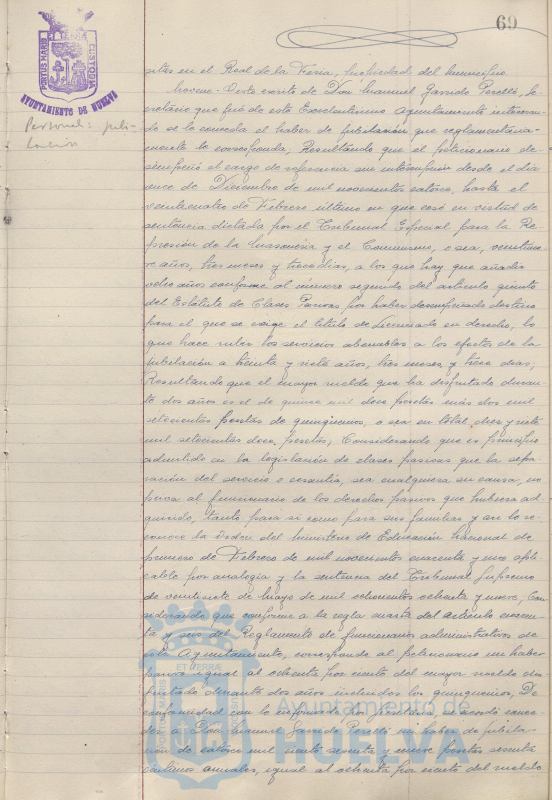 69
PORTUS MARIS ET TERRAE CUSTODIA
AYUNTAMIENTO DE HUELVA
Personal: jubi-
lación
sitas en el Real de la Feria, propiedad del Municipio
Noveno- Visto escrito de Don Manuel Garrido Perelló, Se
cretario que fué de este Excelentísimo Ayuntamiento interesan-
do se le conceda el haber de jubilación que reglamentaria-
mente le corresponda, Resultando que el peticionario de-
sempeñó el cargo de referencia sin interrupción desde el dia
once de Diciembre de mil novecientos catorce, hasta el
veinticuatro de Febrero último en que cesó en virtud de
sentencia dictada por el Tribunal Especial para la Re-
presión de la Masonería y el Comunismo, o sea, veintinue-
ve años, tres meses y trece dias, a los que hay que añadir
ocho años conforme al número segundo del artículo quinto
del Estatuto de Clases Pasivas por haber desempeñado destino
para el que se exige el título de Licenciado en derecho, lo
que hace subir los servicios abonables a los efectos de la
jubilación a treinta y siete años, tres meses y trece dias;
Resultando que el mayor sueldo que ha disfrutado duran-
te dos años es el de quince mil doce pesetas más dos mil
setecientas pesetas de quinquenios, o sea en total diez y siete
mil setecientas doce pesetas; Considerando que es principio
admitido en la legislación de clases pasivas que la sepa-
ración del servicio o cesantía, sea cualquiera su causa, no
priva al funcionario de los derechos pasivos que hubiera ad-
quirido, tanto para si como para sus familias y así lo re-
conoce la Orden del Ministerio de Educación Nacional de
primero de Febrero de mil novecientos cuarenta y uno apli-
cable por analogía y la sentencia del Tribunal Supremo
de veintisiete de Mayo de mil ochocientos ochenta y nueve, Con-
siderando que conforme a la regla cuarta del artículo cuaren-
ta y seis del Reglamento de funcionarios administrativos de
este Ayuntamiento, corresponde al peticionario un haber
pasivo igual al ochenta por ciento del mayor sueldo dis-
frutado durante dos años incluidos los quinquenios, De
conformidad con lo informado por se acordó conce-
der a Don Manuel Garrido Perelló un haber de jubila-
ción de catorce mil ciento sesenta y nueve pesetas sesenta
centimos anuales, igual al ochenta por ciento del sueldo
PORTUS MARIS ET TERRAE CUSTODIA
Ayuntamiento de
HUELVA